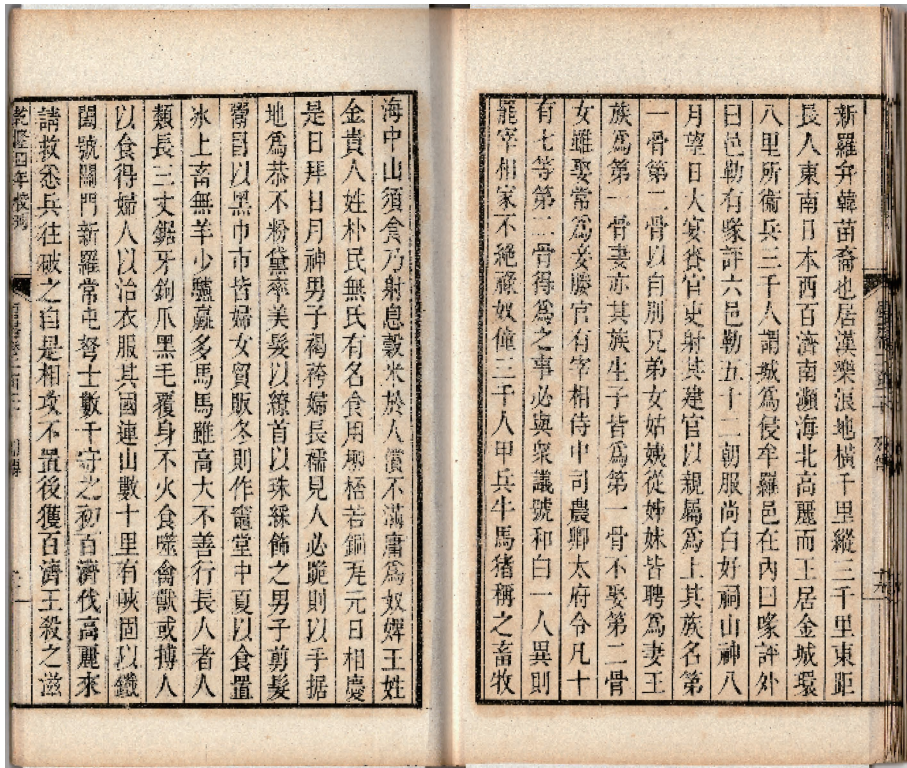 新羅弁韓苗裔也居漢樂浪地橫千里縱三千里東距
長人東南日本西百濟南瀕海北高麗而王居金城環
八里所衛兵三千人謂城爲侵牟羅邑在內曰喙評外
曰邑勒有喙評六邑勒五十二朝服尚白好祠山神八
月望日大宴賚官吏射其建官以親屬爲上其族名第
一骨第二骨以自別兄弟女姑姨從姊妹皆聘爲妻王
族爲第一骨妻亦其族生子皆爲第一骨不娶第二骨
女雖娶常爲妾媵官有宰相侍中司農卿太府令凡十
有七等第二骨得爲之事必與衆議號和白一人異則
罷宰相家不絕祿奴僮三千人甲兵牛馬猪稱之畜牧
海中山須食乃射息穀米於人償不滿庸爲奴婢王姓
金貴人姓朴民無氏有名食用柳桮若銅瓦元日相慶
是日拜日月神男子褐袴婦長襦見人必跪則以手据
地爲恭不粉黛率美髮以繚首以珠綵飾之男子剪髮
鬻冒以黑巾市皆婦女貿販冬則作竈堂中夏以食置
冰上畜無羊少驢驘多馬馬雖高大不善行長人者人
類長三丈鋸牙鉤爪黑毛覆身不火食噬禽獸或搏人
以食得婦人以治衣服其國連山數十里有峽固以鐵
闔號關門新羅常屯弩士數千守之初百濟伐高麗來
請救悉兵往破之自是相攻不置後獲百濟王殺之滋
乾隆四年校刊
列傳